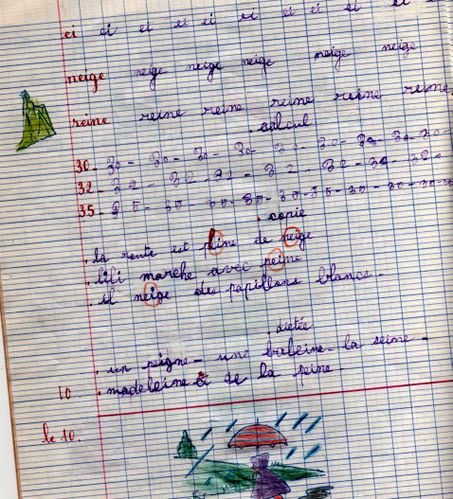 ei ei ei ei ei ei ei ei ei ei ei
neige neige neige neige neige neige
reine reine reine reine reine reine
. calcul
30 - 30 - 30 - 30 - 30 - 30 - 30 - 30 - 30 - 30 -
32 - 32 - 32 - 32 - 32 - 32 - 32 - 32 -
35 - 35 - 35 - 35 - 35 - 35 - 35 - 35 -
. copie
. la route est pleine de neige
. lili marche avec peine
. il neige des papillons blancs.
. dictée
. un peigne - une baleine - la seine -
10 . madeleine de la peine -
le 10.